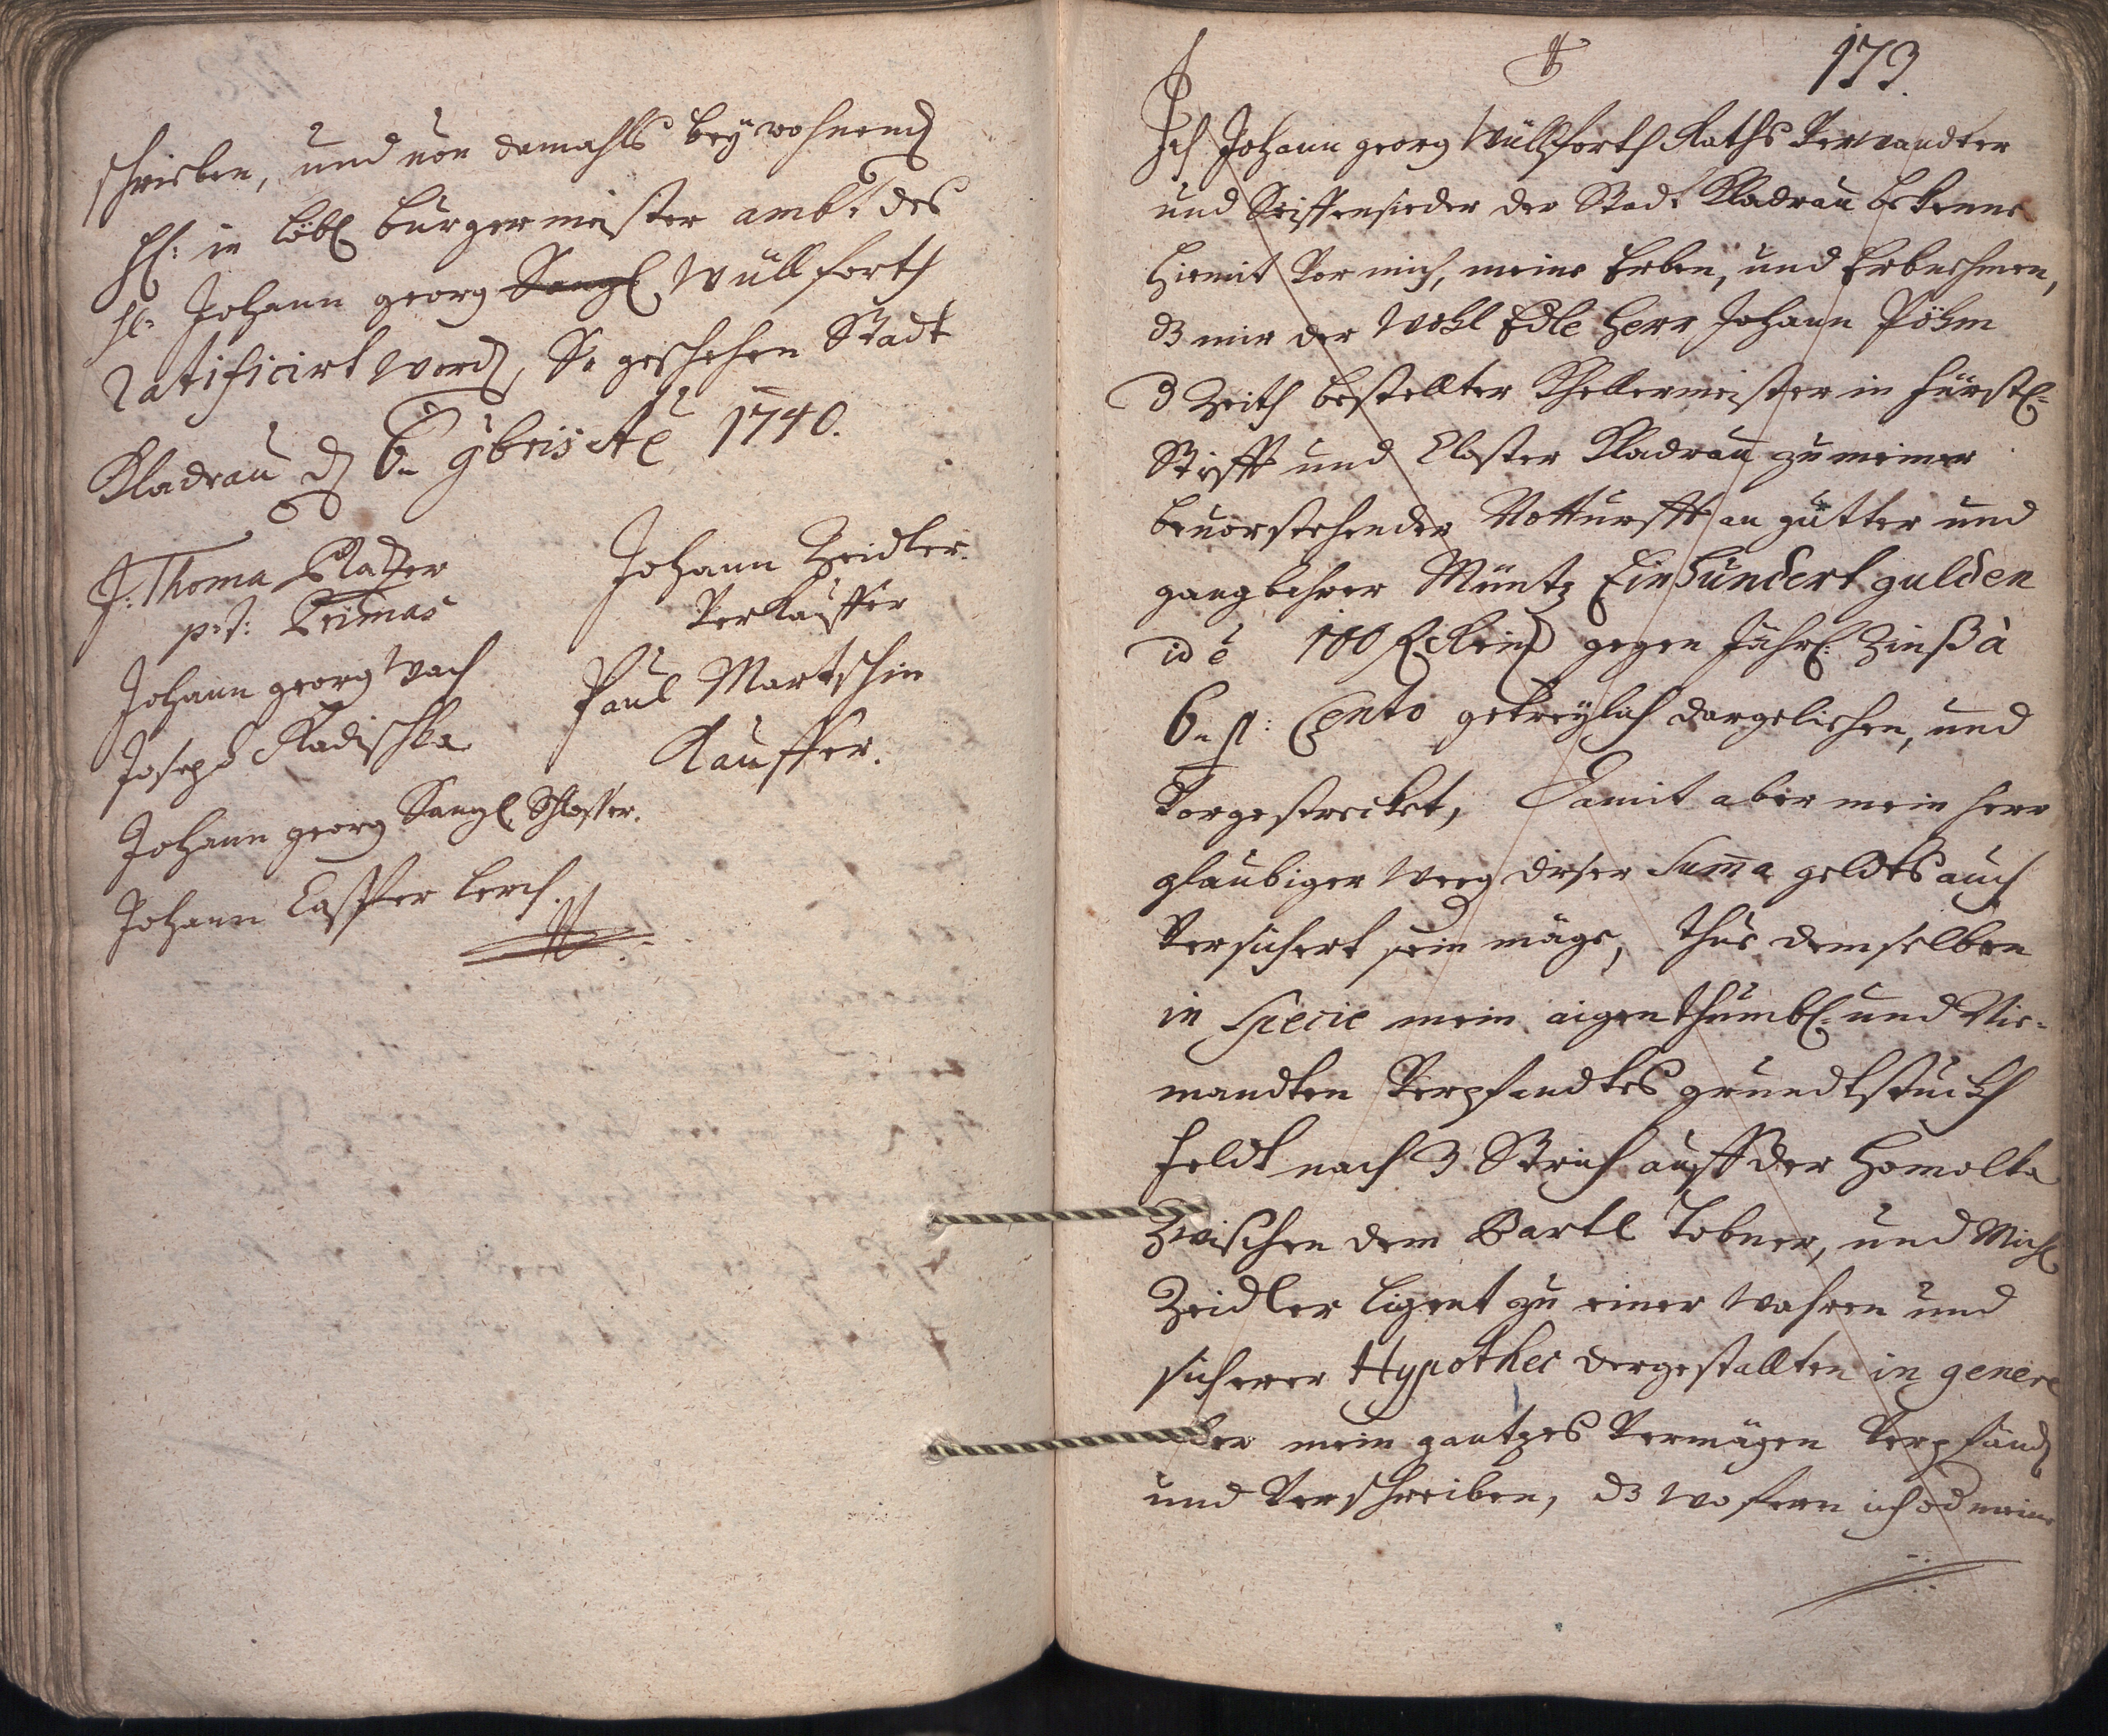 schrieben, und von damahls beÿwohnend
H: in löbl burgermeister ambt des
H: Johann georg Sangl Wüllforth
ratificirt word, So geschehen Stadt
Kladrau d 6ten 9bris Aẽ 1740.
J: Thoma Platzer
p: t: Primas
Johann georg Wach
Joseph Radischka
Johann georg Sangl Schlosser.
Johann Casper Lerch.
Johann Zeidler.
Verkauffer
Paul Martschin
Kauffer.
173.
Ich Johann georg Wüllforth Raths Verwandter
und Seiffensieder der Stadt Kladrau bekenne
hiemit Vor mich, meine Erben, und Erbnehmen,
dz mir der Wohl Edle Herr Johann Pöhm
d Zeith bestellter Khellermeister in fürstl:
Stifft und Closter Kladrau zu meiner
bevorstehender Notturfft an gutter und
gangbahrer Müntz Einhundert gulden
id ẽ 100 f Rheinl gegen Jährl: Zinß à
6 fl: Cento getreylich dargeliehen, und
Vorgestrecket, Damit aber mein Herr
glaubiger weeg dieser Sum̃a geldts auch
Versichert sein möge, thue demselben
in Specie mein aigenthumbl: und Nie-
mandten Verpfendtes grundtstuckh
feldt nach 3 Strich auff der Homolka
Zwischen dem Bartl Tobner, und Michl
Zeidler ligent zu einer wahren und
sicherer Hypothec dergestallten in genere
aber mein gantzes Vermögen Verpfänd
und Verschreiben, dz wofern ich od meine